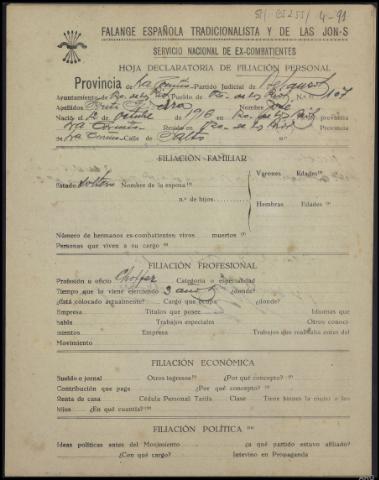 FALANGE ESPAÑOLA TRADICIONALISTA Y DE LAS JON-S
SERVICIO NACIONAL DE EX-COMBATIENTES
HOJA DECLARATORIA DE FILIACIÓN PERSONAL
Provincia de La Coruña Partido Judicial de
Ayuntamiento de Pueblo de N.º 107
Apellidos Nombre José
Nació el 12 de Octubre de 1916 en provincia
La Coruña Reside en Provincia
de La Coruña Calle de n.º
FILIACIÓN FAMILIAR
Estado soltero Nombre de la esposa
n.º de hijos
Varones Edades
Hembras Edades
Número de hermanos ex-combatientes: vivos muertos
Personas que viven a su cargo
FILIACIÓN PROFESIONAL
Profesión u oficio Choffer Categoría o especialidad
Tiempo que la viene ejerciendo 3 años ¿dónde?
¿Está colocado actualmente? Cargo que ocupa ¿donde?
Empresa Títulos que posee Idiomas que
habla Trabajos especiales Otros conoci-
mientos Empresa Trabajos que realizaba antes del
Movimiento
FILIACIÓN ECONÓMICA
Sueldo o jornal Otros ingresos ¿Por qué concepto?
Contribución que paga ¿Por qué concepto?
Renta de casa Cédula Personal Tarifa Clase Tiene bienes la mujer o los
hijos ¿En qué cuantía?
FILIACIÓN POLÍTICA
Ideas políticas antes del Movimiento ¿a qué partido estuvo afiliado?
¿Con qué cargo? Intervino en Propaganda